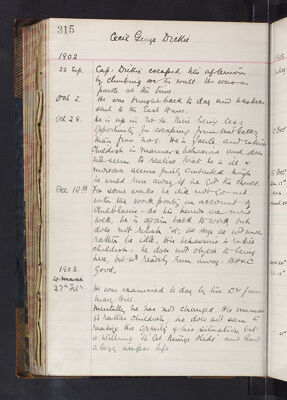 315
Cecil George Dickes
1902
22 Sep. Capt Dickes escaped this afternoon
by climbing over the wall. He was on
parole at the time.
Oct 2. He was brought back to day and has been
sent to the East House.
Oct 28. He is up in No 12 there being less
opportunity for escaping from that
than from No 1. He is quite and rather
childish in manner & behaviour and does
not seem to realise that he is ill &
moreover seems fairly contented though
he would run away if he got the chance.
Dec 19th For some weeks he did not go out
with the work party on account of
chilblains. As his hands are now
well, he is again back to work but
does not relish it. He says he would much
rather be idle. His behaviour is rather
childish. He does not object to being
here, but would readily run away.
Good.
1903.
27th Feb. He was examined to day by two Drs from
Mentally he has not changed. His manner
is rather childish; he does not seem to
realize the gravity of his situation but
is willing to let things slide and lead
a lazy aimless life.